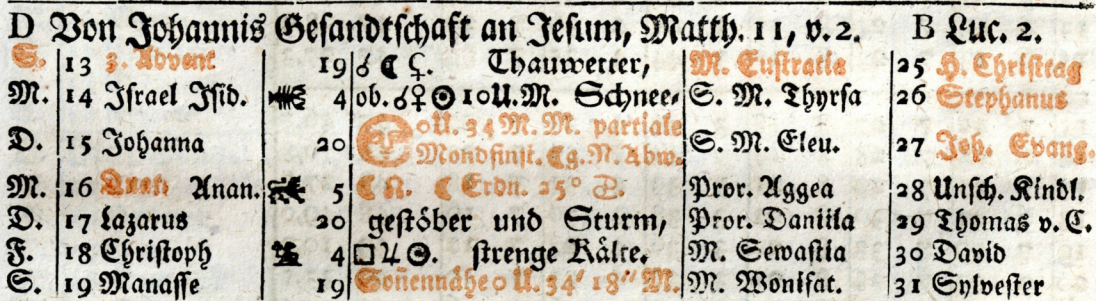 D Von Johannis Gesandtschaft an Jesum, Matth. 11, v. 2. B Luc. 2.
S. 13 3. Advent 19 ☌ ☾ ♀. Thauwetter, M. Eustratia 25 H. Christtag
M. 14 Israel Isid. 4 ob. ☌ ♀ ☉ 10 U. M. Schnee- S. M. Thyrsa 26 Stephanus
D. 15 Johanna 20 0 U. 34 M. M. partiale S. M. Eleu. 27 Joh. Evang.
Mondfinst. ☾ g. N. Abw.
M. 16 Quat. Anan. 5 ☾ ☊. ☾ Erdn. 25° Pror. Aggea 28 Unsch. Kindl.
D. 17 Lazarus 20 gestöber und Sturm, Pror. Daniila 29 Thomas v. C.
F. 18 Christoph 4 □ ♃ ☉. strenge Kälte. M. Sewastia 30 David
S. 19 Manasse 19 Soñennähe 0 U. 34′ 18″ M. M. Wonifat. 31 Sylvester